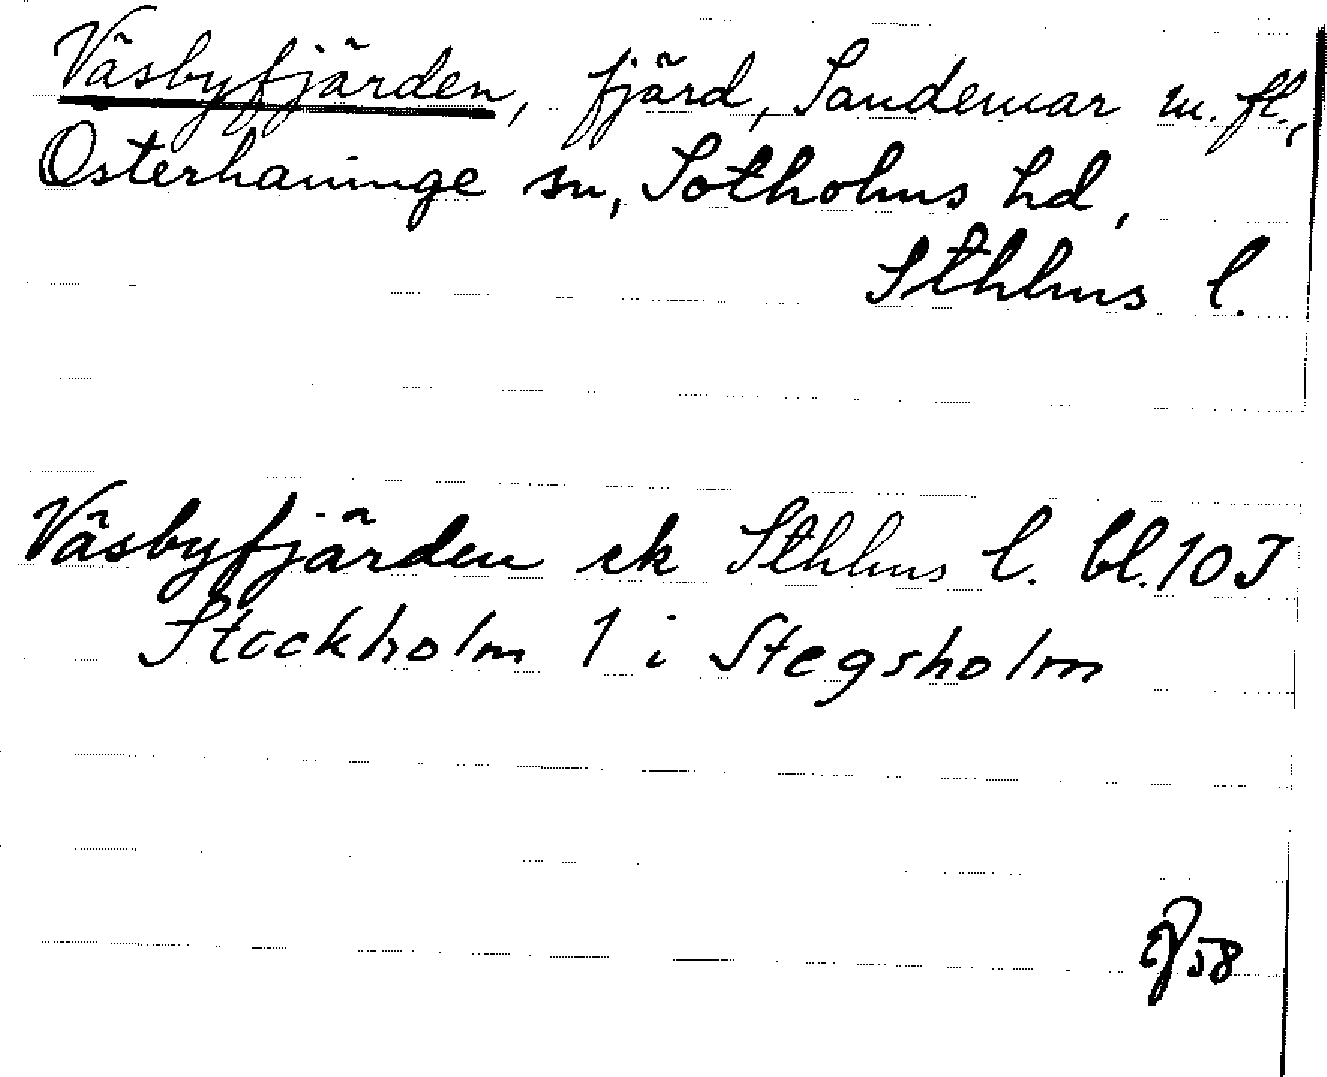 Väsbyfjärden, fjärd, Sandemar m. fl.,
Österhaninge sn, Sotholms hd,
Sthlms l.
Väsbyfjärden ek Sthlms l. bl. 10 I
Stockholm 1 i Stegsholm
58